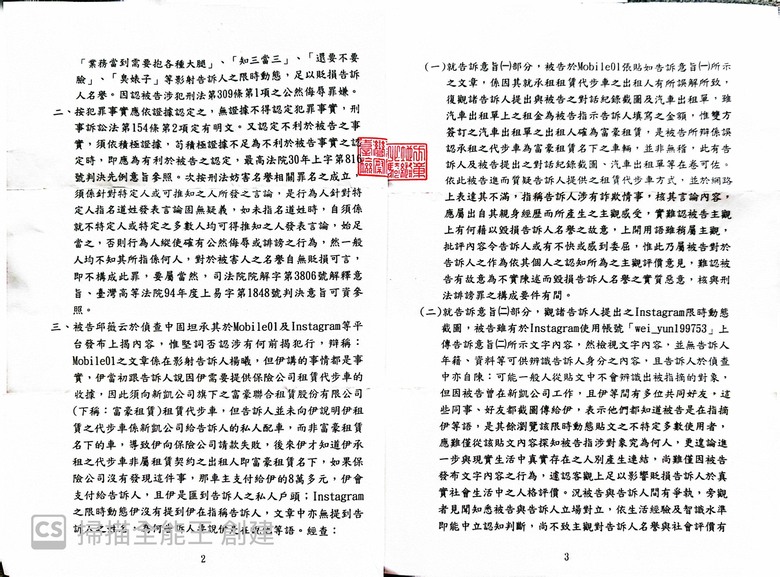 「業務當到需要抱各種大腿」、「知三當三」、「還要不要
臉」、「臭婊子」等影射告訴人之限時動態，足以貶損告訴
人名譽。因認被告涉犯刑法第309條第1項之公然侮辱罪嫌。
二、按犯罪事實應依證據認定之，無證據不得認定犯罪事實，刑
事訴訟法第154條第2項定有明文。又認定不利於被告之事
實，須依積極證據，苟積極證據不足為不利於被告事實之認
定時，即應為有利於被告之認定，最高法院30年上字第816
號判決先例意旨參照。次按刑法妨害名譽相關罪名之成立，
須係針對特定人或可推知之人所發之言論，是行為人針對特
定人指名道姓發表言論固無疑義，如未指名道姓時，自須係
就不特定人或特定之多數人均可得推知之人發表言論，始足
當之，否則行為人縱使確有公然侮辱或誹謗之行為，然一般
人均不知其所指係何人，對於被害人之名譽自無貶損可言，
即不構成此罪，要屬當然，司法院院解字第3806號解釋意
旨、臺灣高等法院94年度上易字第1848號判決意旨可資參
照。
三、被告邱薇云於偵查中固坦承其於Mobile01及Instagram等平
台發布上揭內容，惟堅詞否認涉有何前揭犯行，辯稱：
Mobile01之文章係在影射告訴人楊曦，但伊講的事情都是事
實，伊當初跟告訴人說因伊需要提供保險公司租賃代步車的
收據，因此須向新凱公司旗下之富豪聯合租賃股份有限公司
(下稱：富豪租賃)租賃代步車，但告訴人並未向伊說明伊租
賃之代步車係新凱公司給告訴人的私人配車，而非富豪租賃
名下的車，導致伊向保險公司請款失敗，後來伊才知道伊承
租之代步車非屬租賃契約之出租人即富豪租賃名下，如果保
險公司沒有發現這件事，那車主支付給伊的8萬多元，伊會
支付給告訴人，且伊是匯到告訴人之私人戶頭；Instagram
之限時動態伊沒有提到伊在指稱告訴人，文章中亦無提到告
訴人之姓名，為何告訴人要說伊是在說他等語。經查：
CS 掃描全能王 創建
2
(一)就告訴意旨㈠部分，被告於Mobile01張貼如告訴意旨㈠所示
之文章，係因其就承租租賃代步車之出租人有所誤解所致，
復觀諸告訴人提出與被告之對話紀錄截圖及汽車出租單，雖
汽車出租單上之租金為被告指示告訴人填寫之金額，惟雙方
簽訂之汽車出租單之出租人確為富豪租賃，是被告所辯係誤
認承租之代步車為富豪租賃名下之車輛，並非無稽，此有告
訴人及被告提出之對話紀錄截圖、汽車出租單等在卷可佐。
依此被告進而質疑告訴人提供之租賃代步車方式，並於網路
上表達其不滿，指稱告訴人涉有詐欺情事，核其言論內容，
應屬出自其親身經歷而所產生之主觀感受，實難認被告主觀
上有何藉以毀損告訴人名譽之故意，上開用語雖稍屬主觀，
批評內容令告訴人或有不快或感到委屈，惟此乃屬被告對於
告訴人之作為依其個人之認知所為之主觀評價意見，難認被
告有故意為不實陳述而毀損告訴人名譽之實質惡意，核與刑
法誹謗罪之構成要件有間。
(二)就告訴意旨㈡部分，觀諸告訴人提出之Instagram限時動態
截圖，被告雖有於Instagram使用帳號「wei_yun199753」上
傳告訴意旨㈡所示文字內容，然檢視文字內容，並無告訴人
年籍、資料等可供辨識告訴人身分之內容，且告訴人於偵查
中亦自陳：可能一般人從貼文中不會辨識出被指摘的對象，
但因被告曾在新凱公司工作，且伊等間有多位共同好友，這
些同事、好友都截圖傳給伊，表示他們都知道被告是在指摘
伊等語，是其餘瀏覽該限時動態貼文之不特定多數使用者，
應難僅從該貼文內容探知被告指涉對象究為何人，更遑論進
一步與現實生活中真實存在之人別產生連結，尚難僅因被告
發布文字內容之行為，遽認客觀上足以影響貶損告訴人於真
實社會生活中之人格評價。況被告與告訴人間有爭執，旁觀
者見聞知悉被告與告訴人立場對立，依生活經驗及智識水準
即能中立認知判斷，尚不致主觀對告訴人名譽與社會評價有
3